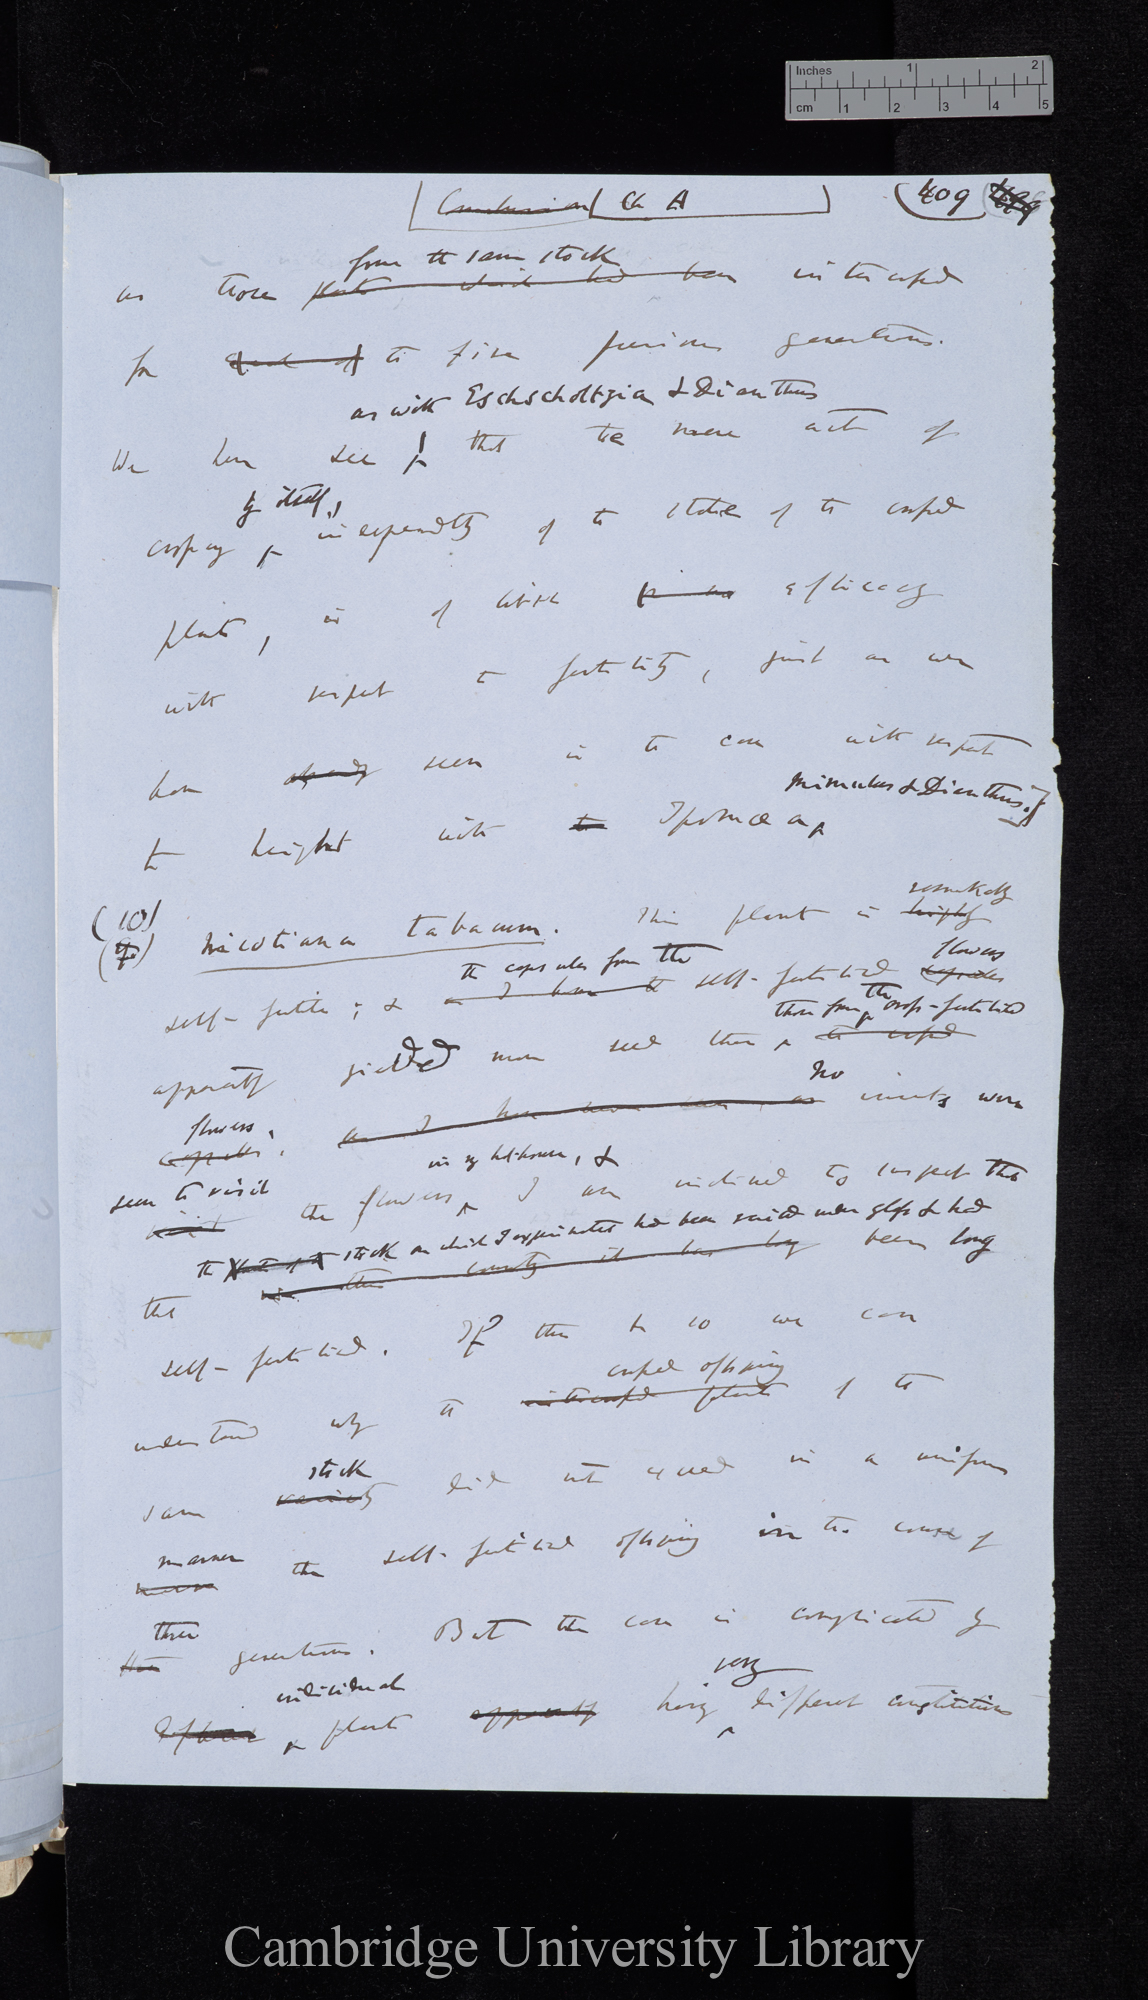 Inches 1 2
cm 1 2 3 4 5
Conclusion Ch A 409
from the same stock
as those plants which had been intercrossed
for to five previous generations.
as with Eschscholtzia & Dianthus
We here see that the mere act of
by itself,
crossing independently of the state of the crossed
plants, is of little efficacy
with respect to fertility, just as we
have already seen in the case with respect
Mimulus & Dianthus.]
to height with the Ipomœa
remarkably
(10) Nicotiana tabacum. This plant is highly
the capsules from the flowers
self-fertile; & as I have the self-fertilised capsules
those from the cross-fertilised
apparently yielded more seed than the crossed
No
flowers
capsules. as I have never seen as insects were
in my hot-house, &
seen to visit
visit the flowers, I am inclined to suspect that
the stock on which I experimented had been raised under glass & had
the in this country it has long been long
self-fertilised. If this be so we can
crossed offspring
understand why the intercrossed plants of the
stock
same variety did not exceed in a uniform
manner
the self-fertilised offspring in the course of
three
generations. But the case is complicated by
individual very
different plants apparently having different constitutions
Cambridge University Library